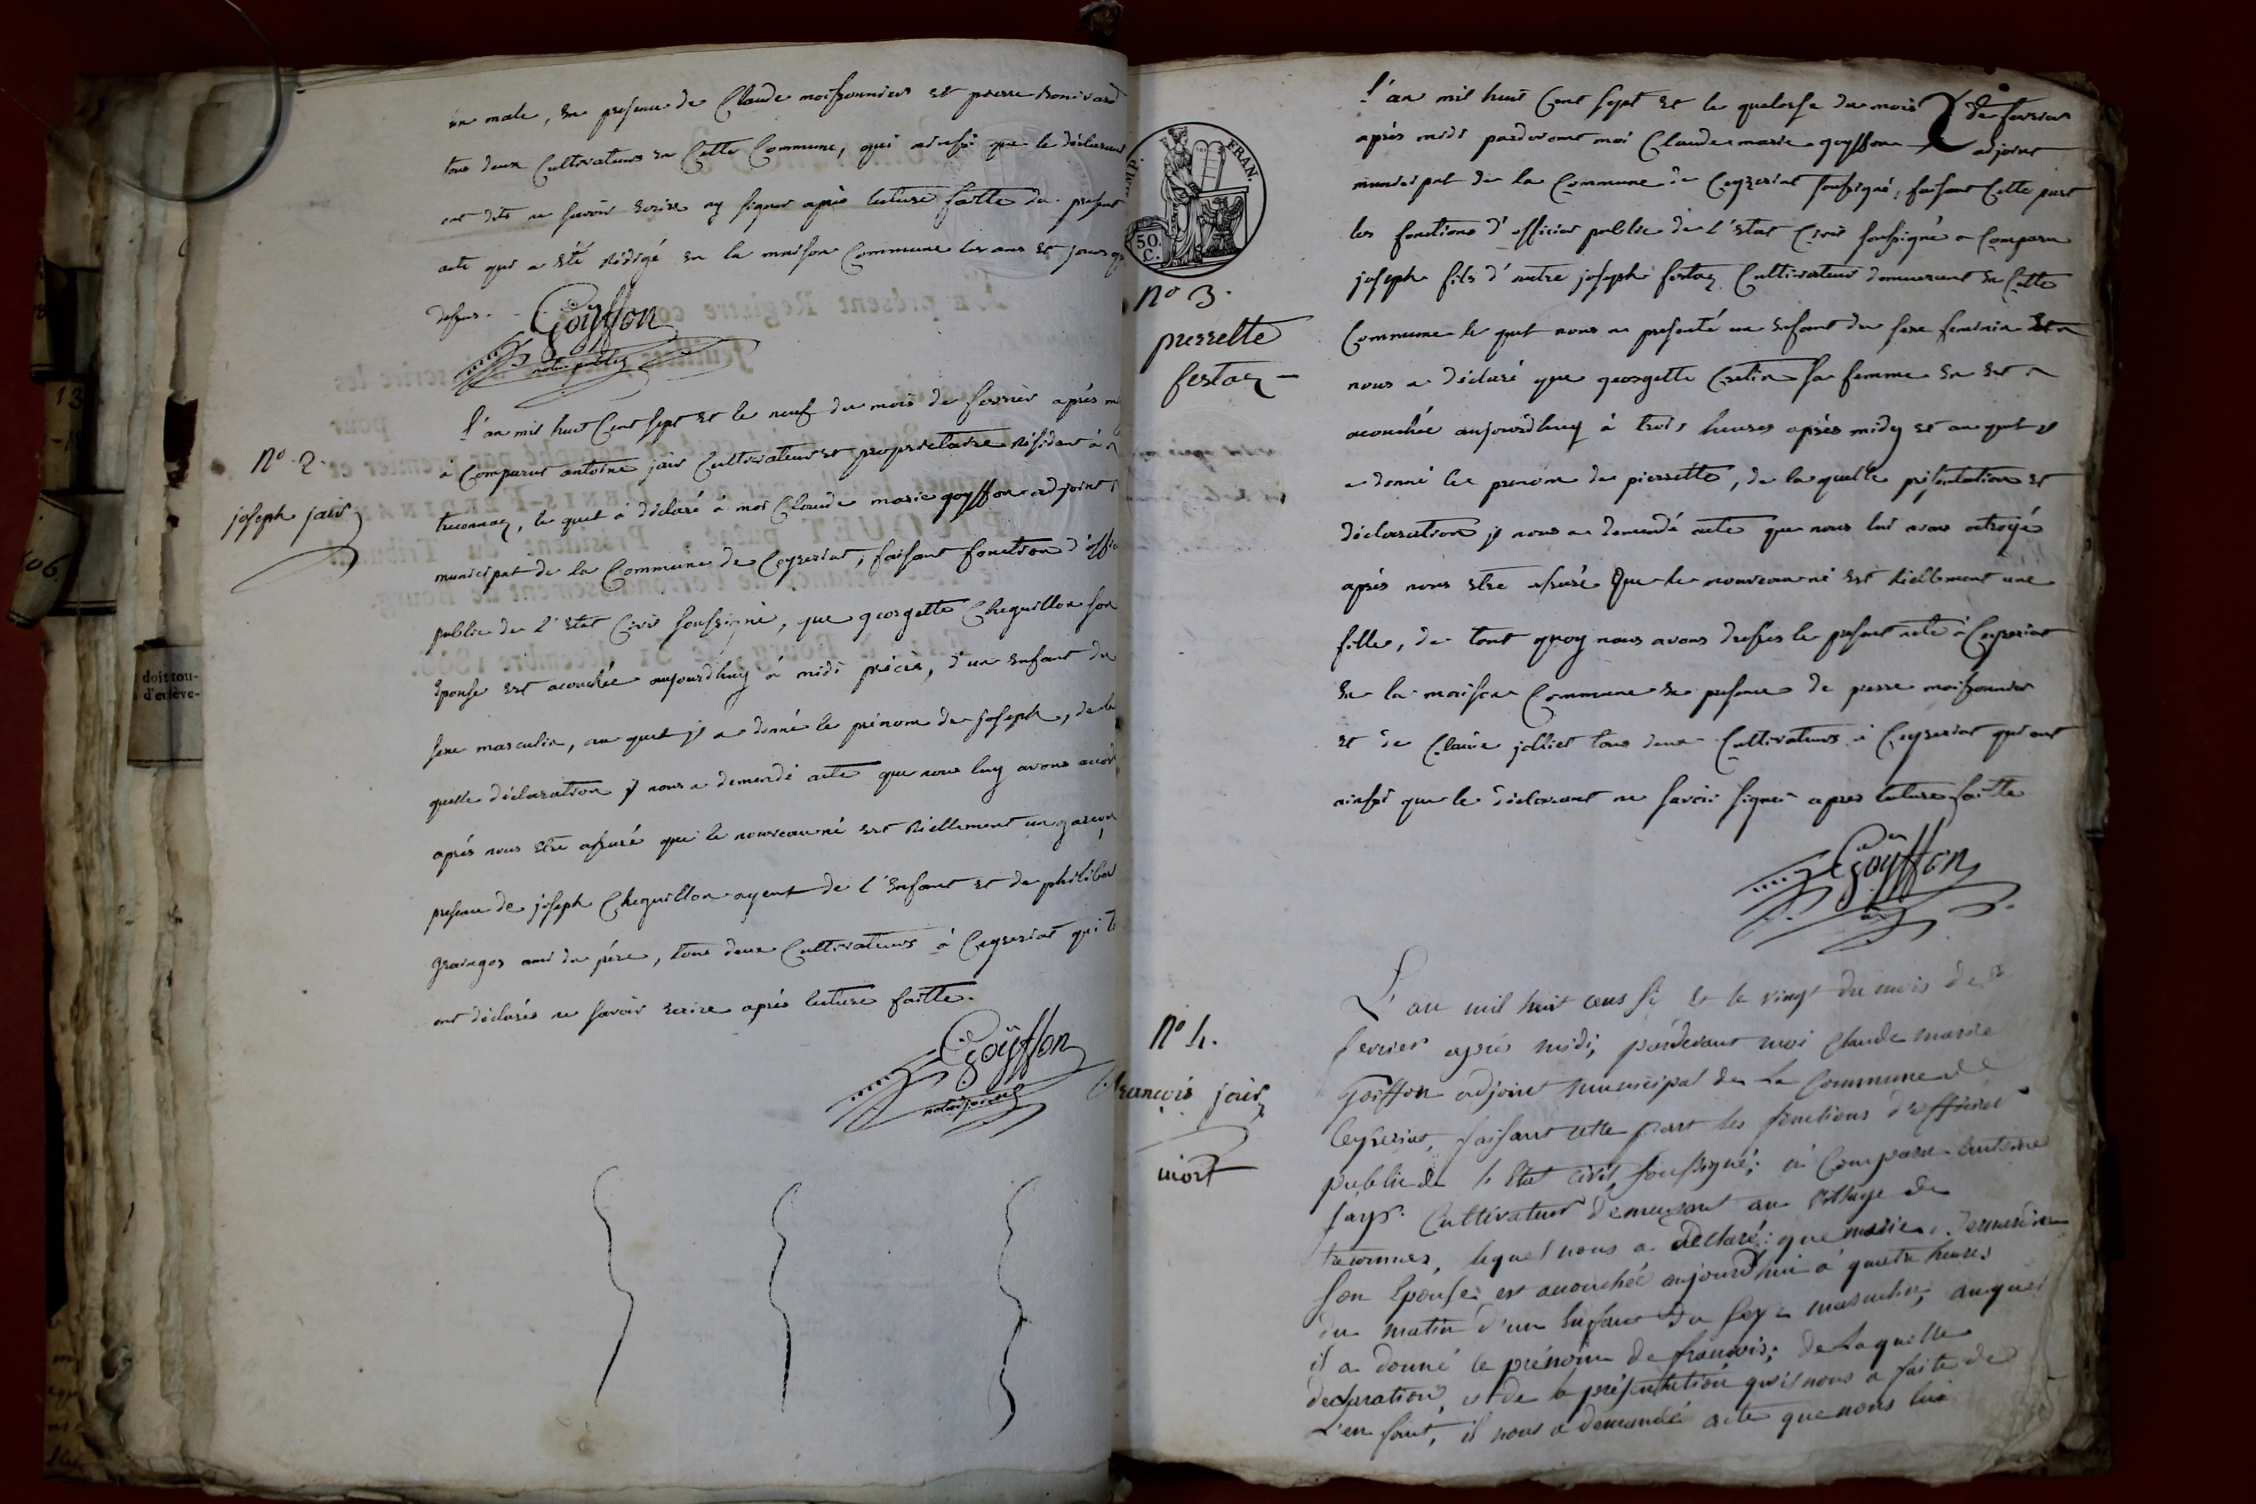 un male, En presence de Claude moissonnier Et pierre bonivard
tous deux Cultivateurs En Cette Commune, qui ainssi que le déclarant
ont dits ne savoir Ecrire ny signer après lecture faitte du présent
acte qui a Eté Rédigé En la maison Commune les ans Et jours
dessus.
Goÿffon
N° 2.
joseph jaïr
L'an mil huit Cent sept Et le neuf du mois de fevrier après
à Comparut antoine jaïr Cultivateur Et proprietaire Résidant à
treconnaz, le quel à déclaré à moi Claude marie goyffon adjoint
municipal de la Commune de Ceyzeriat, faisant fonction
public de L'Etat Civil soussigné, que georgette Chequillon son
Epouse Est acouchée aujourdhuy à midi précis, d'un Enfant du
sexe masculin, au quel jl a donné le prénom de joseph, de la
quelle déclaration jl nous a demandé acte que nous luy avons
après nous Etre assuré que le nouveau né Est Réellement un garçon
presence de joseph Chequillon ayeul de l'Enfant Et de
graingos ami du pére, tous deux Cultivateurs à Ceyzeriat qui
ont déclarés ne savoir Ecrire après lecture faitte.
Goÿffon
FRAN.
50.
C.
L'an mil huit Cent sept Et le quatorse du mois de fevrier
après midi pardevant moi Claude marie goyffon adjoint
municipal de la Commune de Ceyzeriat soussigné, faisant Cette part
les fonctions d'officier public de L'Etat Civil soussigné a Comparu
joseph fils d'autre joseph festaz Cultivateur demeurant En Cette
N° 3.
pierrette
festaz
Commune le quel nous a presenté un Enfant du sexe feminin Et
nous a déclaré que georgette Cretin sa femme En Est
acouchée aujourdhuy à trois heures après midy Et au quel jl
a donné le prenom de pierrette, de la quelle présentation Et
déclaration jl nous a demandé acte que nous lui avons octroyé
après nous Etre assuré Que le nouveau né Est Réellement une
fille, de tout quoy nous avons dressés le présent acte à Ceyzeriat
En la maison Commune En presence de pierre moissonnier
Et de Claude jollier tous deux Cultivateurs à Ceyzeriat qui ont
ainsi que le déclarant ne savoir signer après lecture faitte
Goÿffon
N° 4.
françois jaïr
mort
L'an mil huit cens Et le vingt du mois de
fevrier après midi, pardevant moi Claude marie
Goiffon adjoint municipal de la Commune de
Ceyzeriat, faisant cette part les fonctions d'officier
public de l'Etat civil soussigné; à Comparu antoine
jayr Cultivateur demeurant au village de
treconnas, lequel nous a déclaré: que marie
son Epouse est acouchée aujourd'hui à quatre heures
du matin d'un Enfant du sexe masculin; auquel
il a donné le prénom de françois; de laquelle
declaration, et de la présentation qu'il nous a faite de
l'enfant, il nous a demandé acte que nous lui